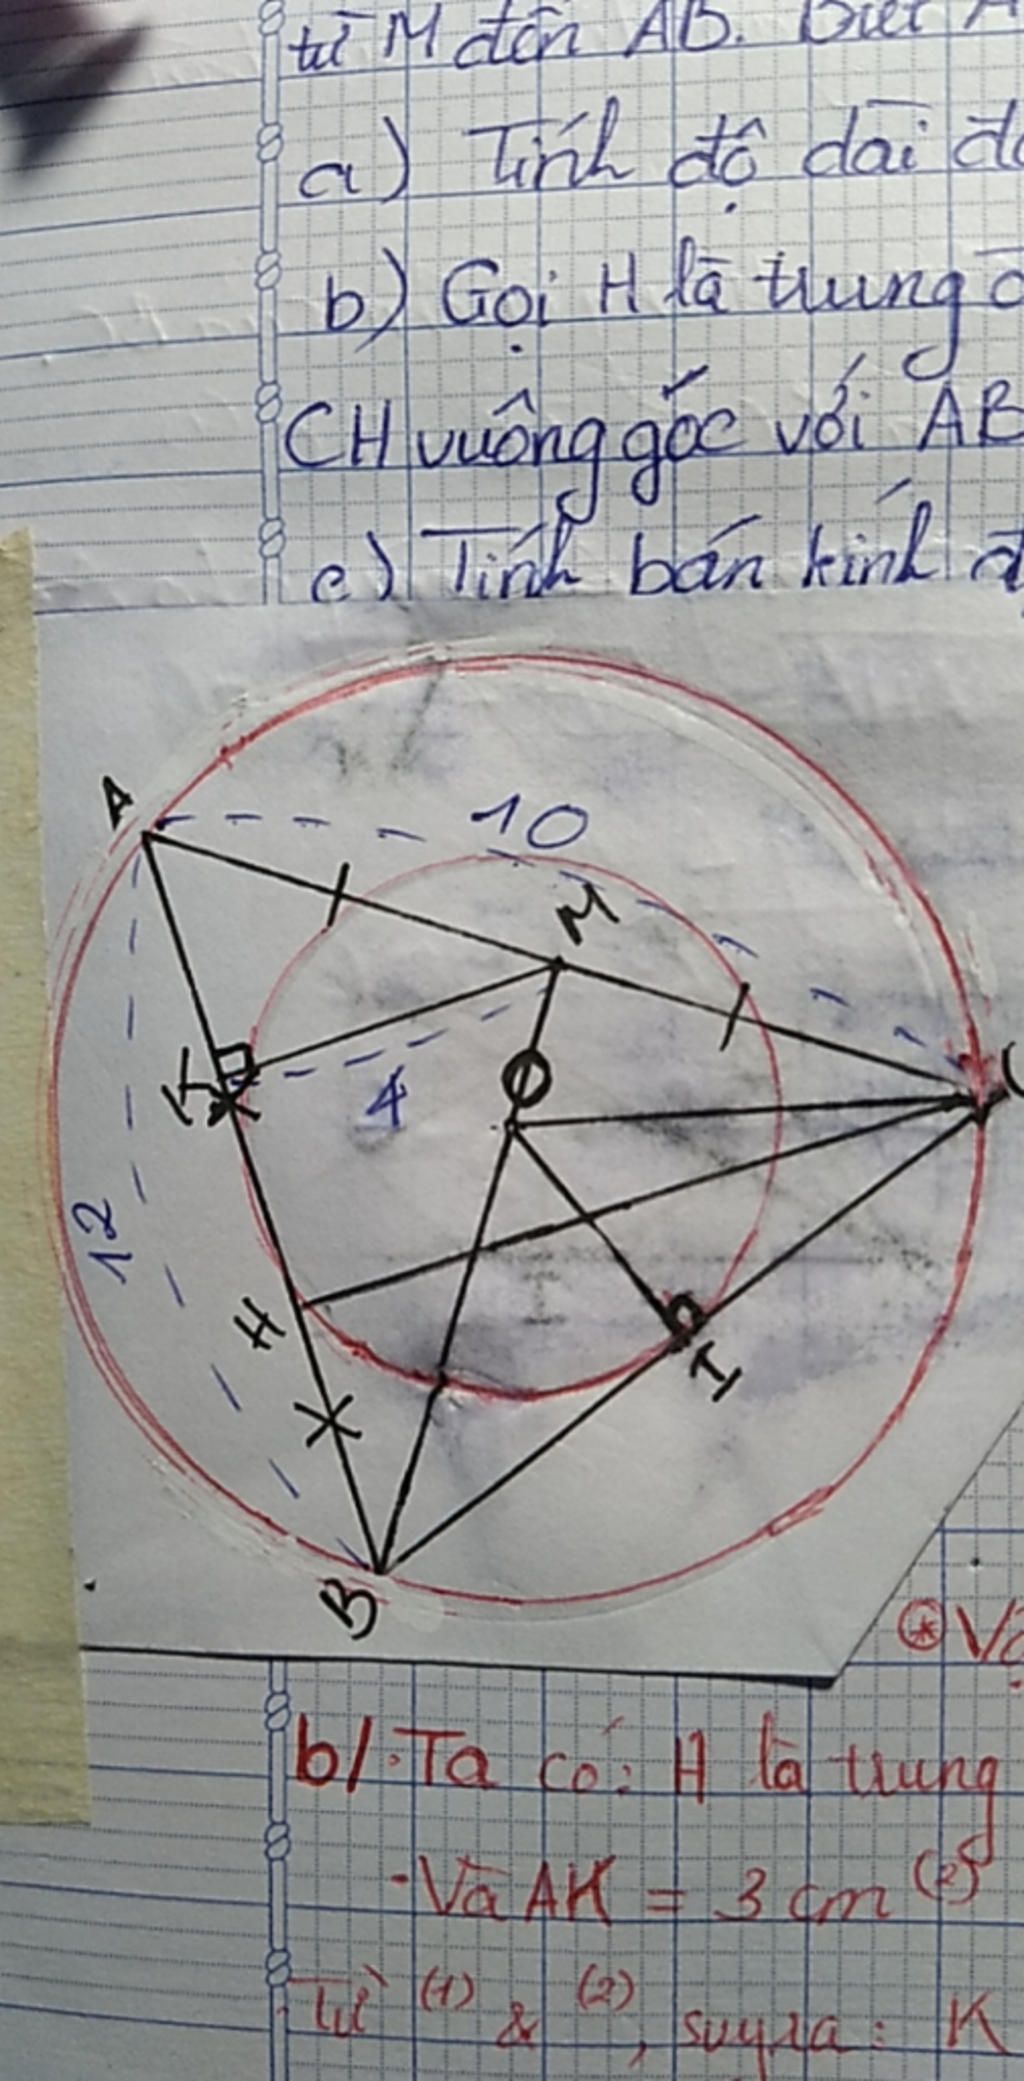 từ M đến AB. Biết A
a) Tính độ dài đo
b) Gọi H là trung đ
CH vuông góc với AB
c) Tính bán kính đ
A
10
M
K
4
O
C
12
H
I
B
⊛ Vậ
b/. Ta có: H là trung
- Và AK = 3 cm (2)
Từ (1) & (2), suy ra: K